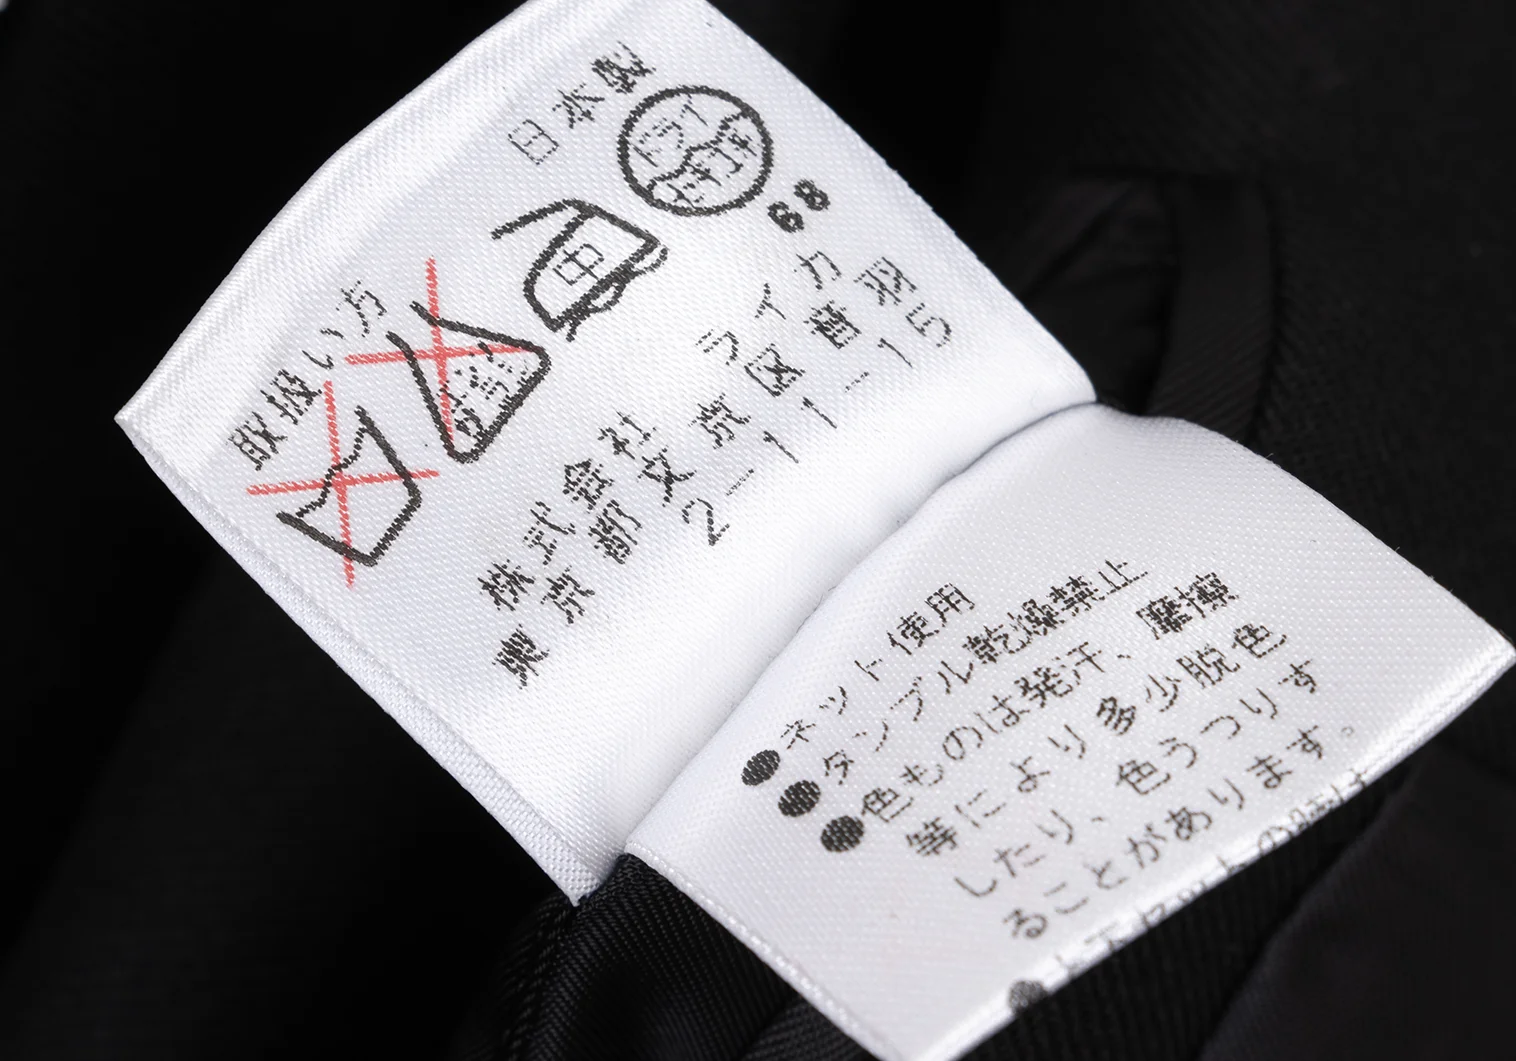 日本製
取扱い方
エンソサラシ
中
ドライ
セキユ系
68
株式会社 ライカ
東京都文京区音羽
2-11-15
●ネット使用
●タンブル乾燥禁止
●色ものは発汗、摩擦
等により多少脱色
したり、色うつりす
ることがあります。